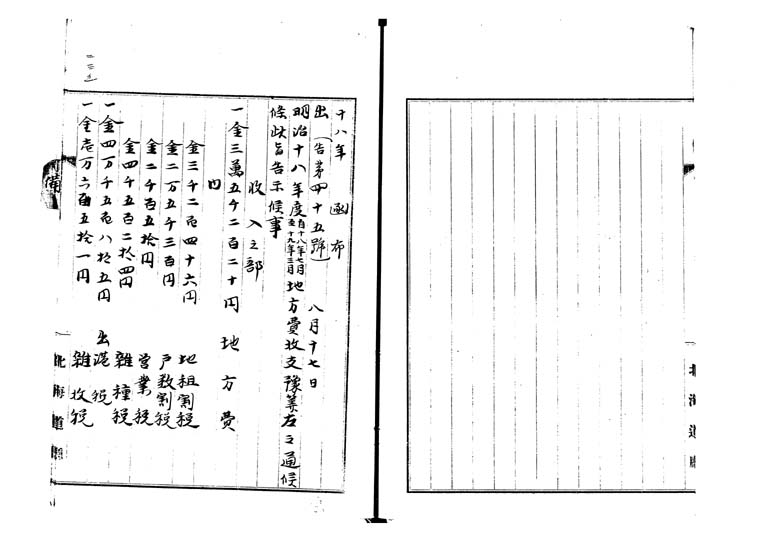 十八年　函布
出（告第四十五號）　八月十七日
明治十八年度自十八年七月至十九年三月地方費收支豫算左之通候
條此旨告示候事
收入之部
一金三萬五千二百二十円　地方費
内
金三千二百四十六円　地租割税
金二万五千三百円　戸数割税
金二千百五拾円　営業税
金四千五百二拾四円　雜種税
一金四万千五百八拾五円　出港税
一金壱万六百五拾一円　雜收税
備
北海道廳
北海道廳